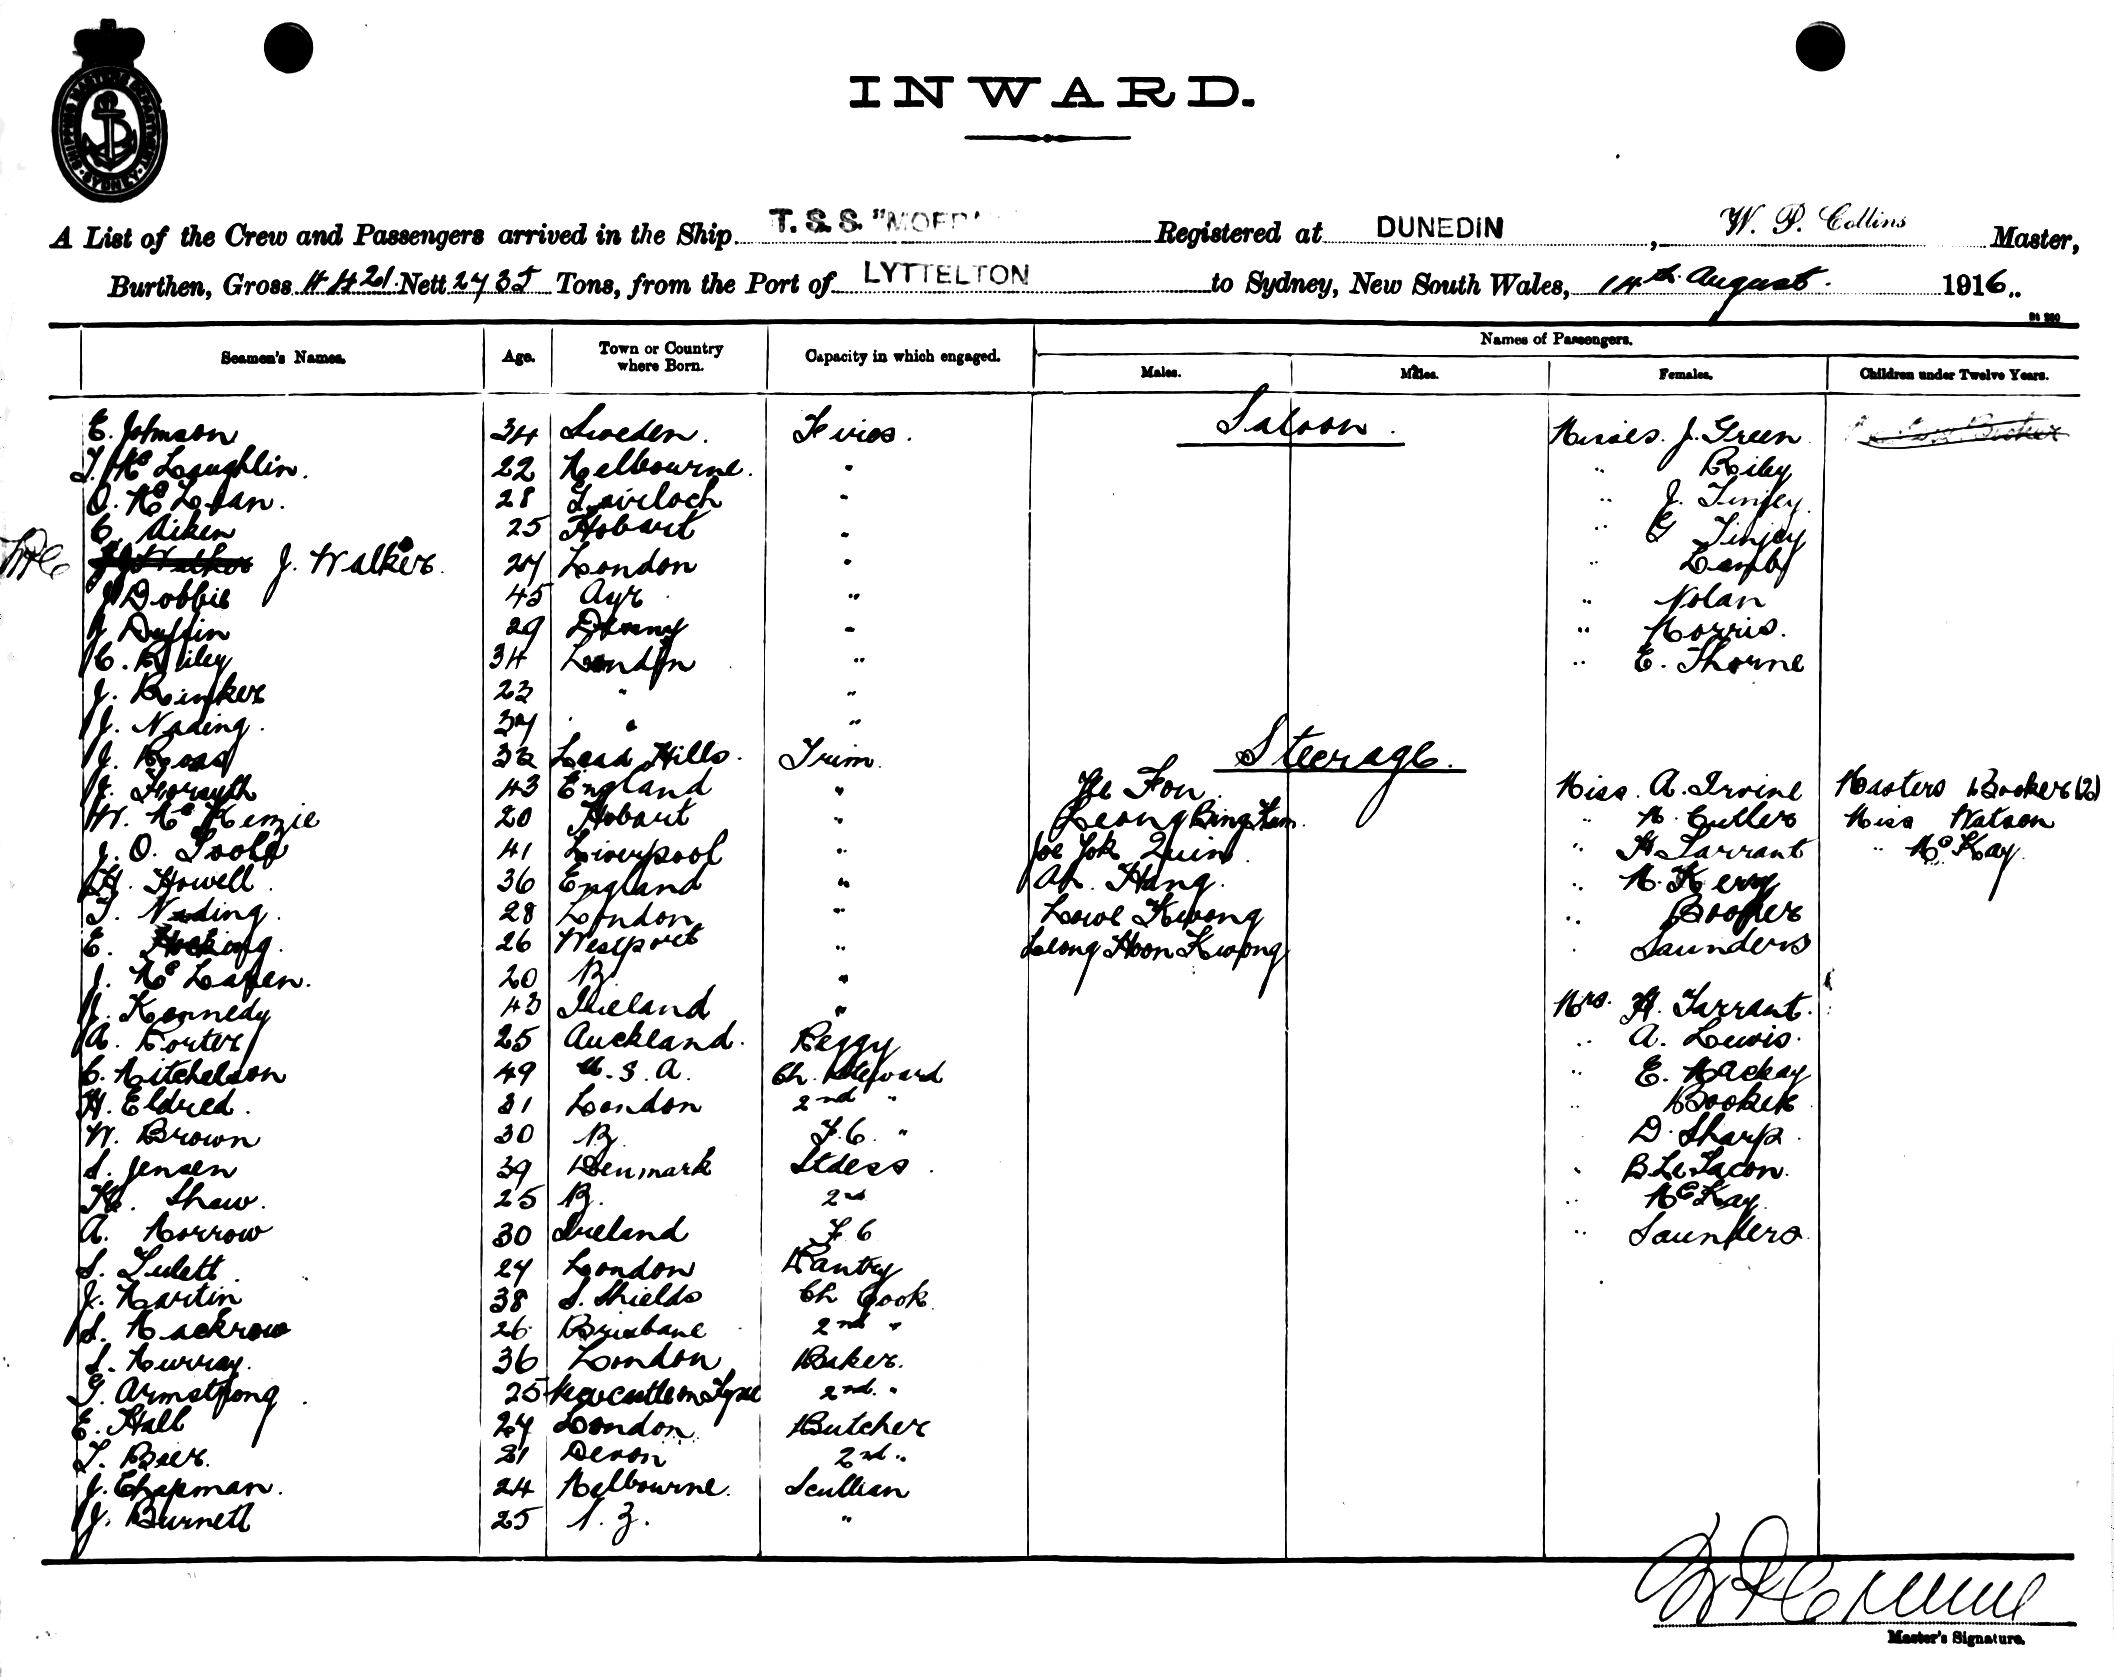 SHIPPING MASTERS DEPARTMENT SYDNEY
INWARD.
A List of the Crew and Passengers arrived in the Ship T.S.S. "MOE Registered at DUNEDIN, W. P. Collins Master,
Burthen, Gross 4421 Nett 2735 Tons, from the Port of LYTTELTON to Sydney, New South Wales, 14th August. 1916..
Names of Passengers.
Seamen's Names. Age. Town or Country where Born. Capacity in which engaged. Males. Males. Females. Children under Twelve Years.
E. Johnson 34 Sweden. Fires. Saloon. Misses. J. Green
T. McLoughlin. 22 Melbourne. " " Riley
McLean. 28 " " J. Tinjey
C. Aiken 25 Hobart " " G Tinjey
WPC J. Walker. 27 London " "
J Dobbie 45 Ayr " " Nolan
J Duffin 29 Denny " " Morris.
C. Riley 34 London " " E. Thorne
J. Rinker 23 " "
J. Nading. 37 " "
J. Ross 32 Lead Hills. Trim. Steerage.
J. Forsyth 43 England " Fon Miss. A. Irvine Masters Booker (2)
W. McKenzie 20 Hobart " Leong Bing Ham. " M. Cutler Miss Watson
J. O. Toole 41 Liverpool " Joe Yok Quin " H Tarrant " McKay.
H. Howell. 36 England " Ah. Hang. " M. Kerry
T. Nading. 28 London " Lowe Kwong " Booker
E. Hocking. 26 Westport " Leong Hoon Kwong " Saunders
J. McLaren. 20 "
J. Kennedy 43 Ireland " Mrs. H. Tarrant.
A. Porter 25 Auckland. Peggy " A. Lewis.
C. Mitchelson 49 U.S.A. Ch. Steward " E. Mackay
H. Eldred. 31 London 2nd " " Booker
W. Brown 30 F.C. " D. Sharp.
S. Jensen 39 Denmark Stdess. " B Le Tacon.
Shaw. 25 2nd " McKay.
A. Morrow 30 Ireland F C " Saunders
S. Tulett 27 London Pantry
J. Martin 38 S. Shields Ch Cook
S. Mackrow 26 Brisbane 2nd "
S. Murray. 36 London Baker.
G. Armstrong 25 Newcastle on Tyne 2nd. "
E. Hall 27 London Butcher
T. Beer. 21 Devon 2nd "
J. Chapman. 24 Melbourne. Scullian
J. Burnett 25 N.Z. "
Master's Signature.